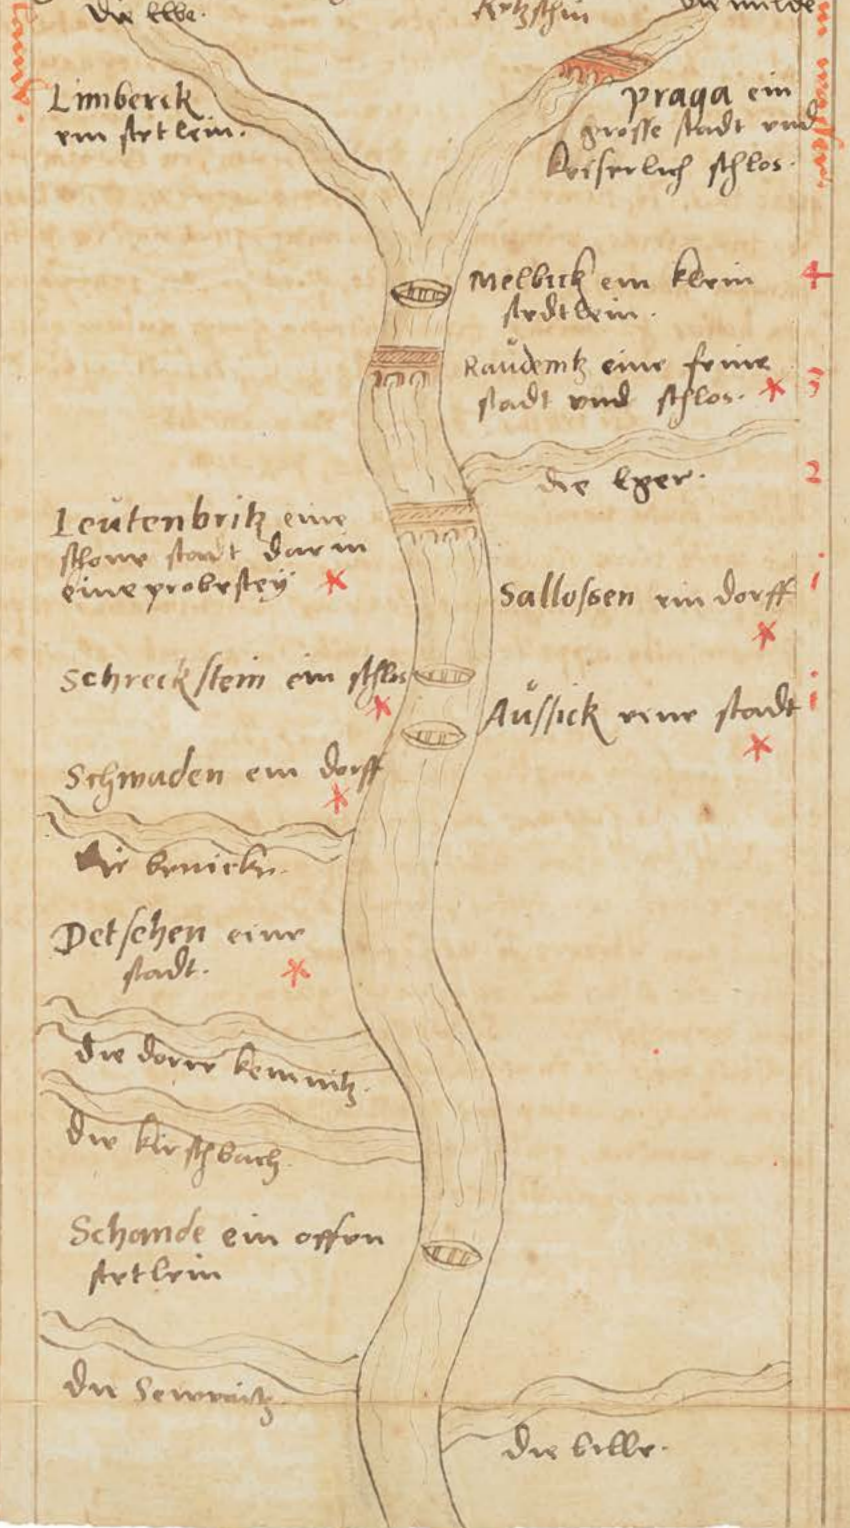 die Elbe.
die mulde
Limberck
ein stetlein.
praga ein
grosse stadt vnd
keiserlich schlos.
Melbick ein klein
stedtlein.
4
Raudenitz eine feine
stadt vnd schlos.
3
die Eger.
2
Leutenbritz eine
schone stadt darin
eine probestey
Sallossen ein dorff
1
Schreckstein ein schlos
Aussick eine stadt
1
Schwaden ein dorff
die
Detschen eine
stadt.
die dorre kemnitz.
die kirschbach
Schande ein offen
stetlein
die
die bille.